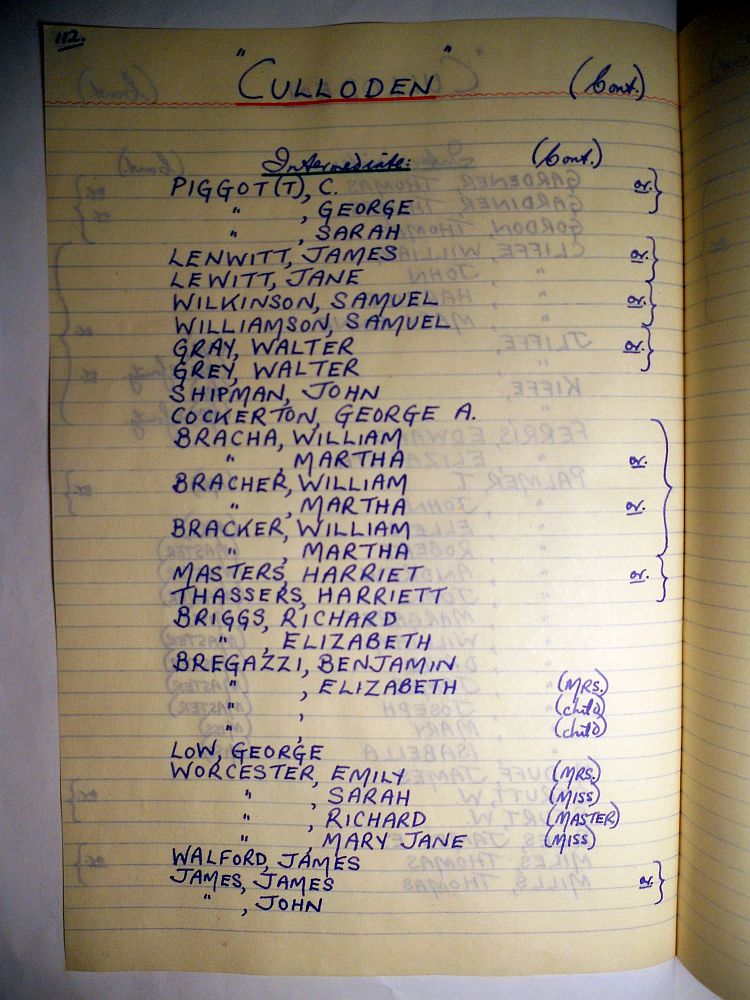 112.
"CULLODEN" (Cont.)
Intermediate: (Cont.)
PIGGOT(T), C. or.
" , GEORGE
" , SARAH
LENWITT, JAMES or.
LEWITT, JANE
WILKINSON, SAMUEL or.
WILLIAMSON, SAMUEL
GRAY, WALTER or.
GREY, WALTER
SHIPMAN, JOHN
COCKERTON, GEORGE A.
BRACHA, WILLIAM
" , MARTHA or.
BRACHER, WILLIAM
" , MARTHA or.
BRACKER, WILLIAM
" , MARTHA
MASTERS, HARRIET or.
THASSERS, HARRIETT
BRIGGS, RICHARD
" , ELIZABETH
BREGAZZI, BENJAMIN
" , ELIZABETH (MRS.)
" , (child)
" , (child)
LOW, GEORGE
WORCESTER, EMILY (MRS.)
" , SARAH (MISS)
" , RICHARD (MASTER)
" , MARY JANE (MISS)
WALFORD, JAMES
JAMES, JAMES or.
" , JOHN